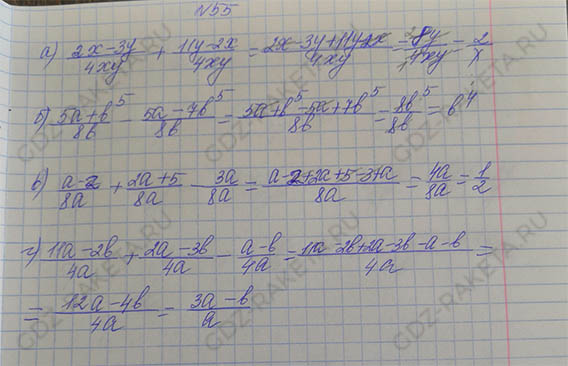 N55
а) (2x-3y)/(4xy) + (11y-2x)/(4xy) = (2x-3y+11y-2x)/(4xy) = (8y)/(4xy) = 2/x
б) (5a+b⁵)/(8b) - (5a-7b⁵)/(8b) = (5a+b⁵-5a+7b⁵)/(8b) = (8b⁵)/(8b) = b⁴
в) (a-2)/(8a) + (2a+5)/(8a) - (3a)/(8a) = /(8a) = (4a)/(8a) = 1/2
г) (11a-2b)/(4a) + (2a-3b)/(4a) - (a-b)/(4a) = (11a-2b+2a-3b-a-b)/(4a) =
= (12a-4b)/(4a) = (3a-b)/a
GDZ-RAKETA.RU